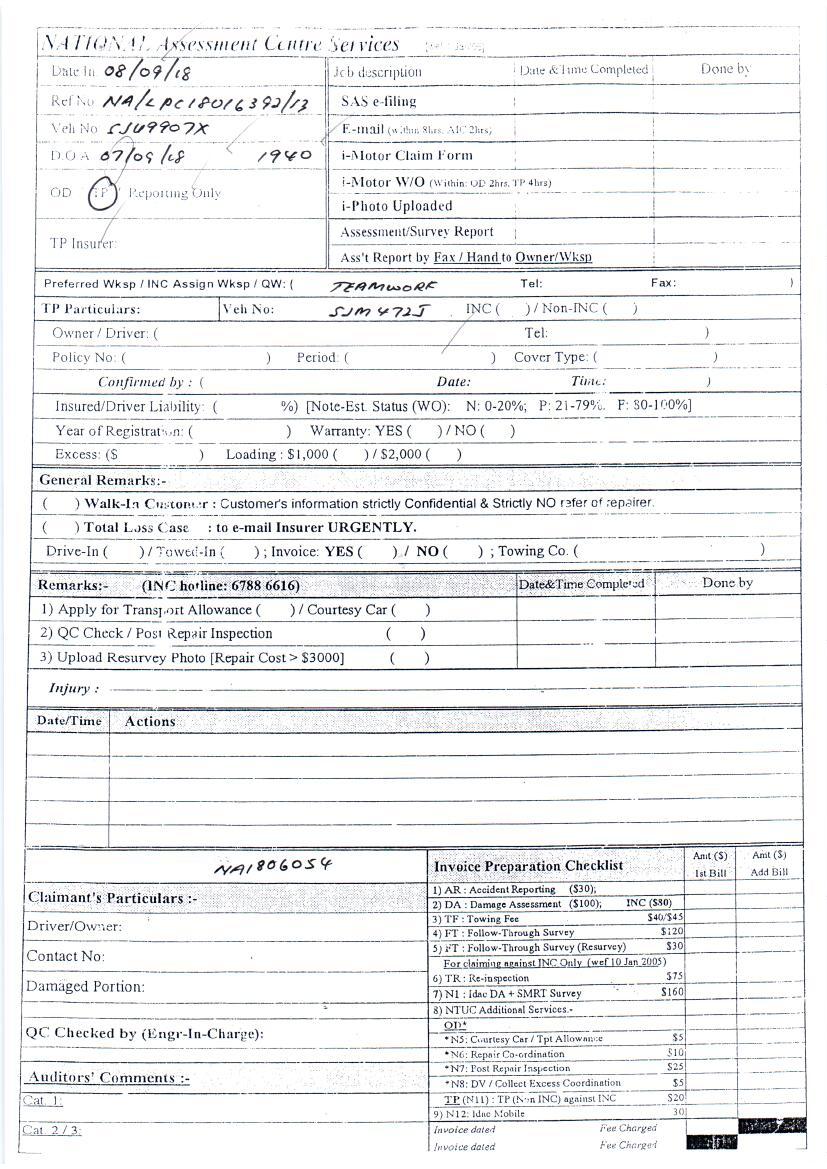 NATIONAL Assessment Centre Services
Date In 08/09/18
Job description Date & Time Completed Done by
Ref No NA/LPC18016392/13
SAS e-filing
Veh No SJU9907X
E-mail (within 8hrs, AIC 2hrs)
D.O.A 07/09/18 1940
i-Motor Claim Form
i-Motor W/O (Within: OD 2hrs, TP 4hrs)
OD TP Reporting Only
i-Photo Uploaded
Assessment/Survey Report
TP Insurer:
Ass't Report by Fax / Hand to Owner/Wksp
Preferred Wksp / INC Assign Wksp / QW: ( TEAMWORK Tel: Fax: )
TP Particulars: Veh No: SJM472J INC ( ) / Non-INC ( )
Owner / Driver: ( Tel: )
Policy No: ( ) Period: ( ) Cover Type: ( )
Confirmed by : ( Date: Time: )
Insured/Driver Liability: ( %) [Note-Est. Status (WO): N: 0-20%; P: 21-79%. F: 80-100%]
Year of Registration: ( ) Warranty: YES ( ) / NO ( )
Excess: ($ ) Loading : $1,000 ( ) / $2,000 ( )
General Remarks:-
( ) Walk-In Customer : Customer's information strictly Confidential & Strictly NO refer of repairer.
( ) Total Loss Case : to e-mail Insurer URGENTLY.
Drive-In ( ) / Towed-In ( ) ; Invoice: YES ( ) / NO ( ) ; Towing Co. ( )
Remarks:- (INC hotline: 6788 6616) Date&Time Completed Done by
1) Apply for Transport Allowance ( ) / Courtesy Car ( )
2) QC Check / Post Repair Inspection ( )
3) Upload Resurvey Photo [Repair Cost > $3000] ( )
Injury :
Date/Time Actions
NA1806054
Invoice Preparation Checklist Amt ($) 1st Bill Amt ($) Add Bill
1) AR : Accident Reporting ($30);
Claimant's Particulars :-
2) DA : Damage Assessment ($100); INC ($80)
3) TF : Towing Fee $40/$45
Driver/Owner:
4) FT : Follow-Through Survey $120
5) FT : Follow-Through Survey (Resurvey) $30
Contact No:
For claiming against INC Only (wef 10 Jan 2005)
6) TR : Re-inspection $75
Damaged Portion:
7) N1 : Idac DA + SMRT Survey $160
8) NTUC Additional Services.-
OD*
QC Checked by (Engr-In-Charge):
*N5: Courtesy Car / Tpt Allowance $5
*N6: Repair Co-ordination $10
*N7: Post Repair Inspection $25
Auditors' Comments :-
*N8: DV / Collect Excess Coordination $5
Cat. 1:
TP (N11) : TP (Non INC) against INC $20
9) N12: Idac Mobile 30
Cat. 2 / 3:
Invoice dated Fee Charged
Invoice dated Fee Charged